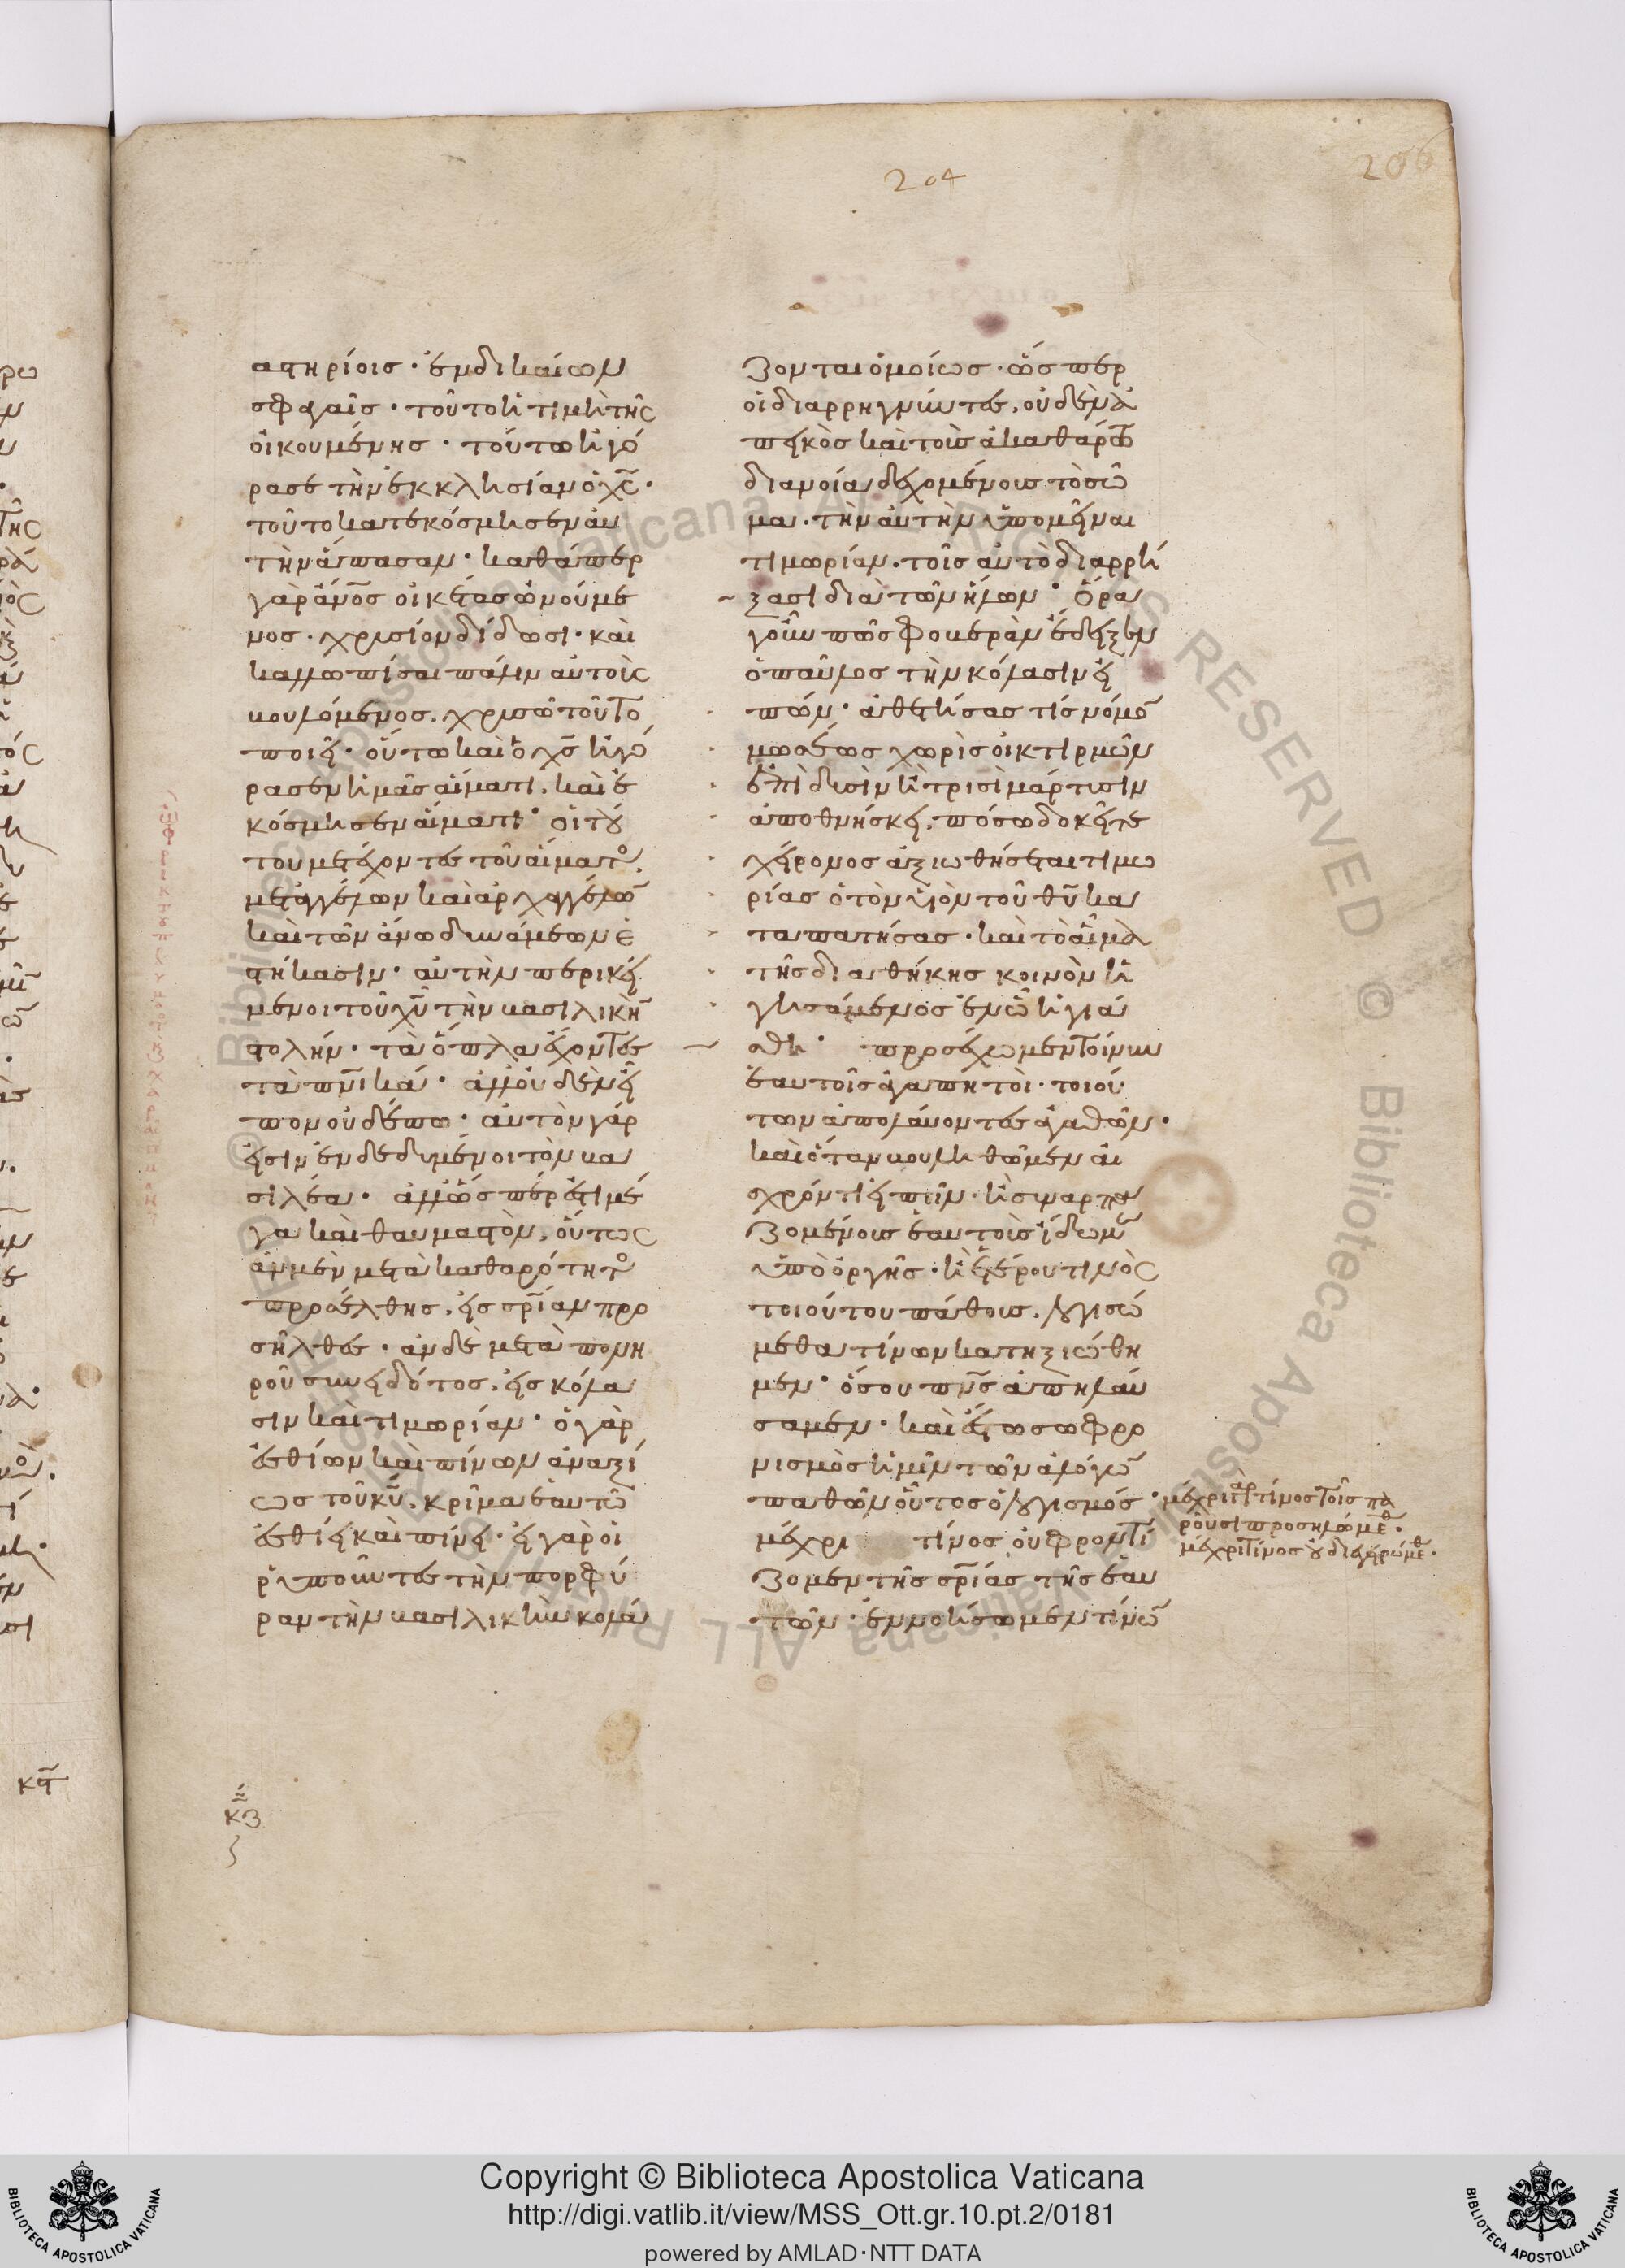 204
206
στηρίοις· ἐν δικαίων
σφαγαῖς· τοῦτο ἡ τιμὴ τῆς
οἰκουμένης· τούτω ἠγό
ρασε τὴν ἐκκλησίαν ὁ χς·
τοῦτο κατεκόσμησεν αὐ
τὴν ἅπασαν· καθάπερ
γὰρ ἄνος οἰκέτας ὠνούμε
νος· χρυσίον δίδωσι· καὶ
καλλωπίσαι πάλιν αὐτοὺς
βουλόμενος, χρυσῶ τοῦτο
ποιεῖ· οὕτω καὶ ὁ χς ἠγό
ρασεν ἡμᾶς αἵματι, καὶ ἐ
κόσμησεν αἵματι· οἱ τού
του μετέχοντες τοῦ αἵματος,
μετ' ἀγγέλων καὶ ἀρχαγγέλων
καὶ τῶν ἄνω δυνάμεων ἑ
στήκασιν· αὐτὴν περικεί
μενοι τοῦ χυ τὴν βασιλικὴν
στολήν· τὰ ὅπλα ἔχοντες
τὰ πνικά· ἀλλ' οὐδὲν εἶ
πον οὐδέπω· αὐτὸν γάρ
εἰσιν ἐνδεδυμένοι τὸν βα
σιλέα· ἀλλ' ὥσπερ ἐστὶ μέ
γα καὶ θαυμαστὸν, οὕτως
ἂν μὲν μετὰ καθαρότητος
προσέλθης, εἰς σριαν προ
σῆλθες· ἂν δὲ μετὰ πονη
ροῦ συνειδότος, εἰς κόλα
σιν καὶ τιμωρίαν· ὁ γὰρ
ἐσθίων καὶ πίνων ἀναξί
ως τοῦ κυ, κρῖμα ἑαυτῶ
ἐσθίει καὶ πίνει· εἰ γὰρ οἱ
ῥυποῦντες τὴν πορφύ
ραν τὴν βασιλικὴν κολά
ζονται ὁμοίως· ὥσπερ
οἱ διαρρηγνύντες, οὐδὲν ἀ
πεικὸς καὶ τοὺς ἀκαθάρτω
διανοία δεχομένους τὸ σῶ
μα, τὴν αὐτὴν ὑπομεῖναι
τιμωρίαν, τοῖς αὐτὸ διαρρή
ξασι διὰ τῶν ἥλων· Ὅρα
γοῦν πῶς φοβερὰν ἔδειξεν
ὁ παῦλος τὴν κόλασιν εἰ
πών· ἀθετήσας τίς νόμον
μωσέως χωρὶς οἰκτιρμῶν
ἐπὶ δυσὶν ἢ τρισὶ μάρτυσιν
ἀποθνήσκει, πόσω δοκεῖτε
χείρονος ἀξιωθήσεται τιμω
ρίας ὁ τὸν υἱὸν τοῦ θυ κα
ταπατήσας· καὶ τὸ αἷμα
τῆς διαθήκης κοινὸν ἡ
γησάμενος ἐν ὧ ἡγιά
σθη· προσέχωμεν τοίνυν
ἑαυτοῖς ἀγαπητοὶ· τοιού
των ἀπολαύοντες ἀγαθῶν·
καὶ ὅταν βουληθῶμεν αἰ
σχρόν τι εἰπεῖν· ἢ συναρπα
ζομένους ἑαυτοὺς ἴδωμεν
ὑπὸ ὀργῆς· ἢ ἑτέρου τινὸς
τοιούτου πάθους, λογισώ
μεθα τίνων κατηξιώθη
μεν· ὅσου πνς ἀπηλαύ
σαμεν· καὶ ἔστω σωφρο
νισμὸς ἡμῖν τῶν ἀλόγων
παθῶν οὗτος ὁ λογισμός·
μέχρι τίνος οὐ φροντί
ζομεν τῆς σριας τῆς ἑαυ
τῶν· ἐννοήσωμεν τίνων
μέχρι γὰρ τίνος τοῖς πα
ροῦσι προσηλώμεθα·
μέχρι τίνος οὐ διεγειρόμεθα·
κζ